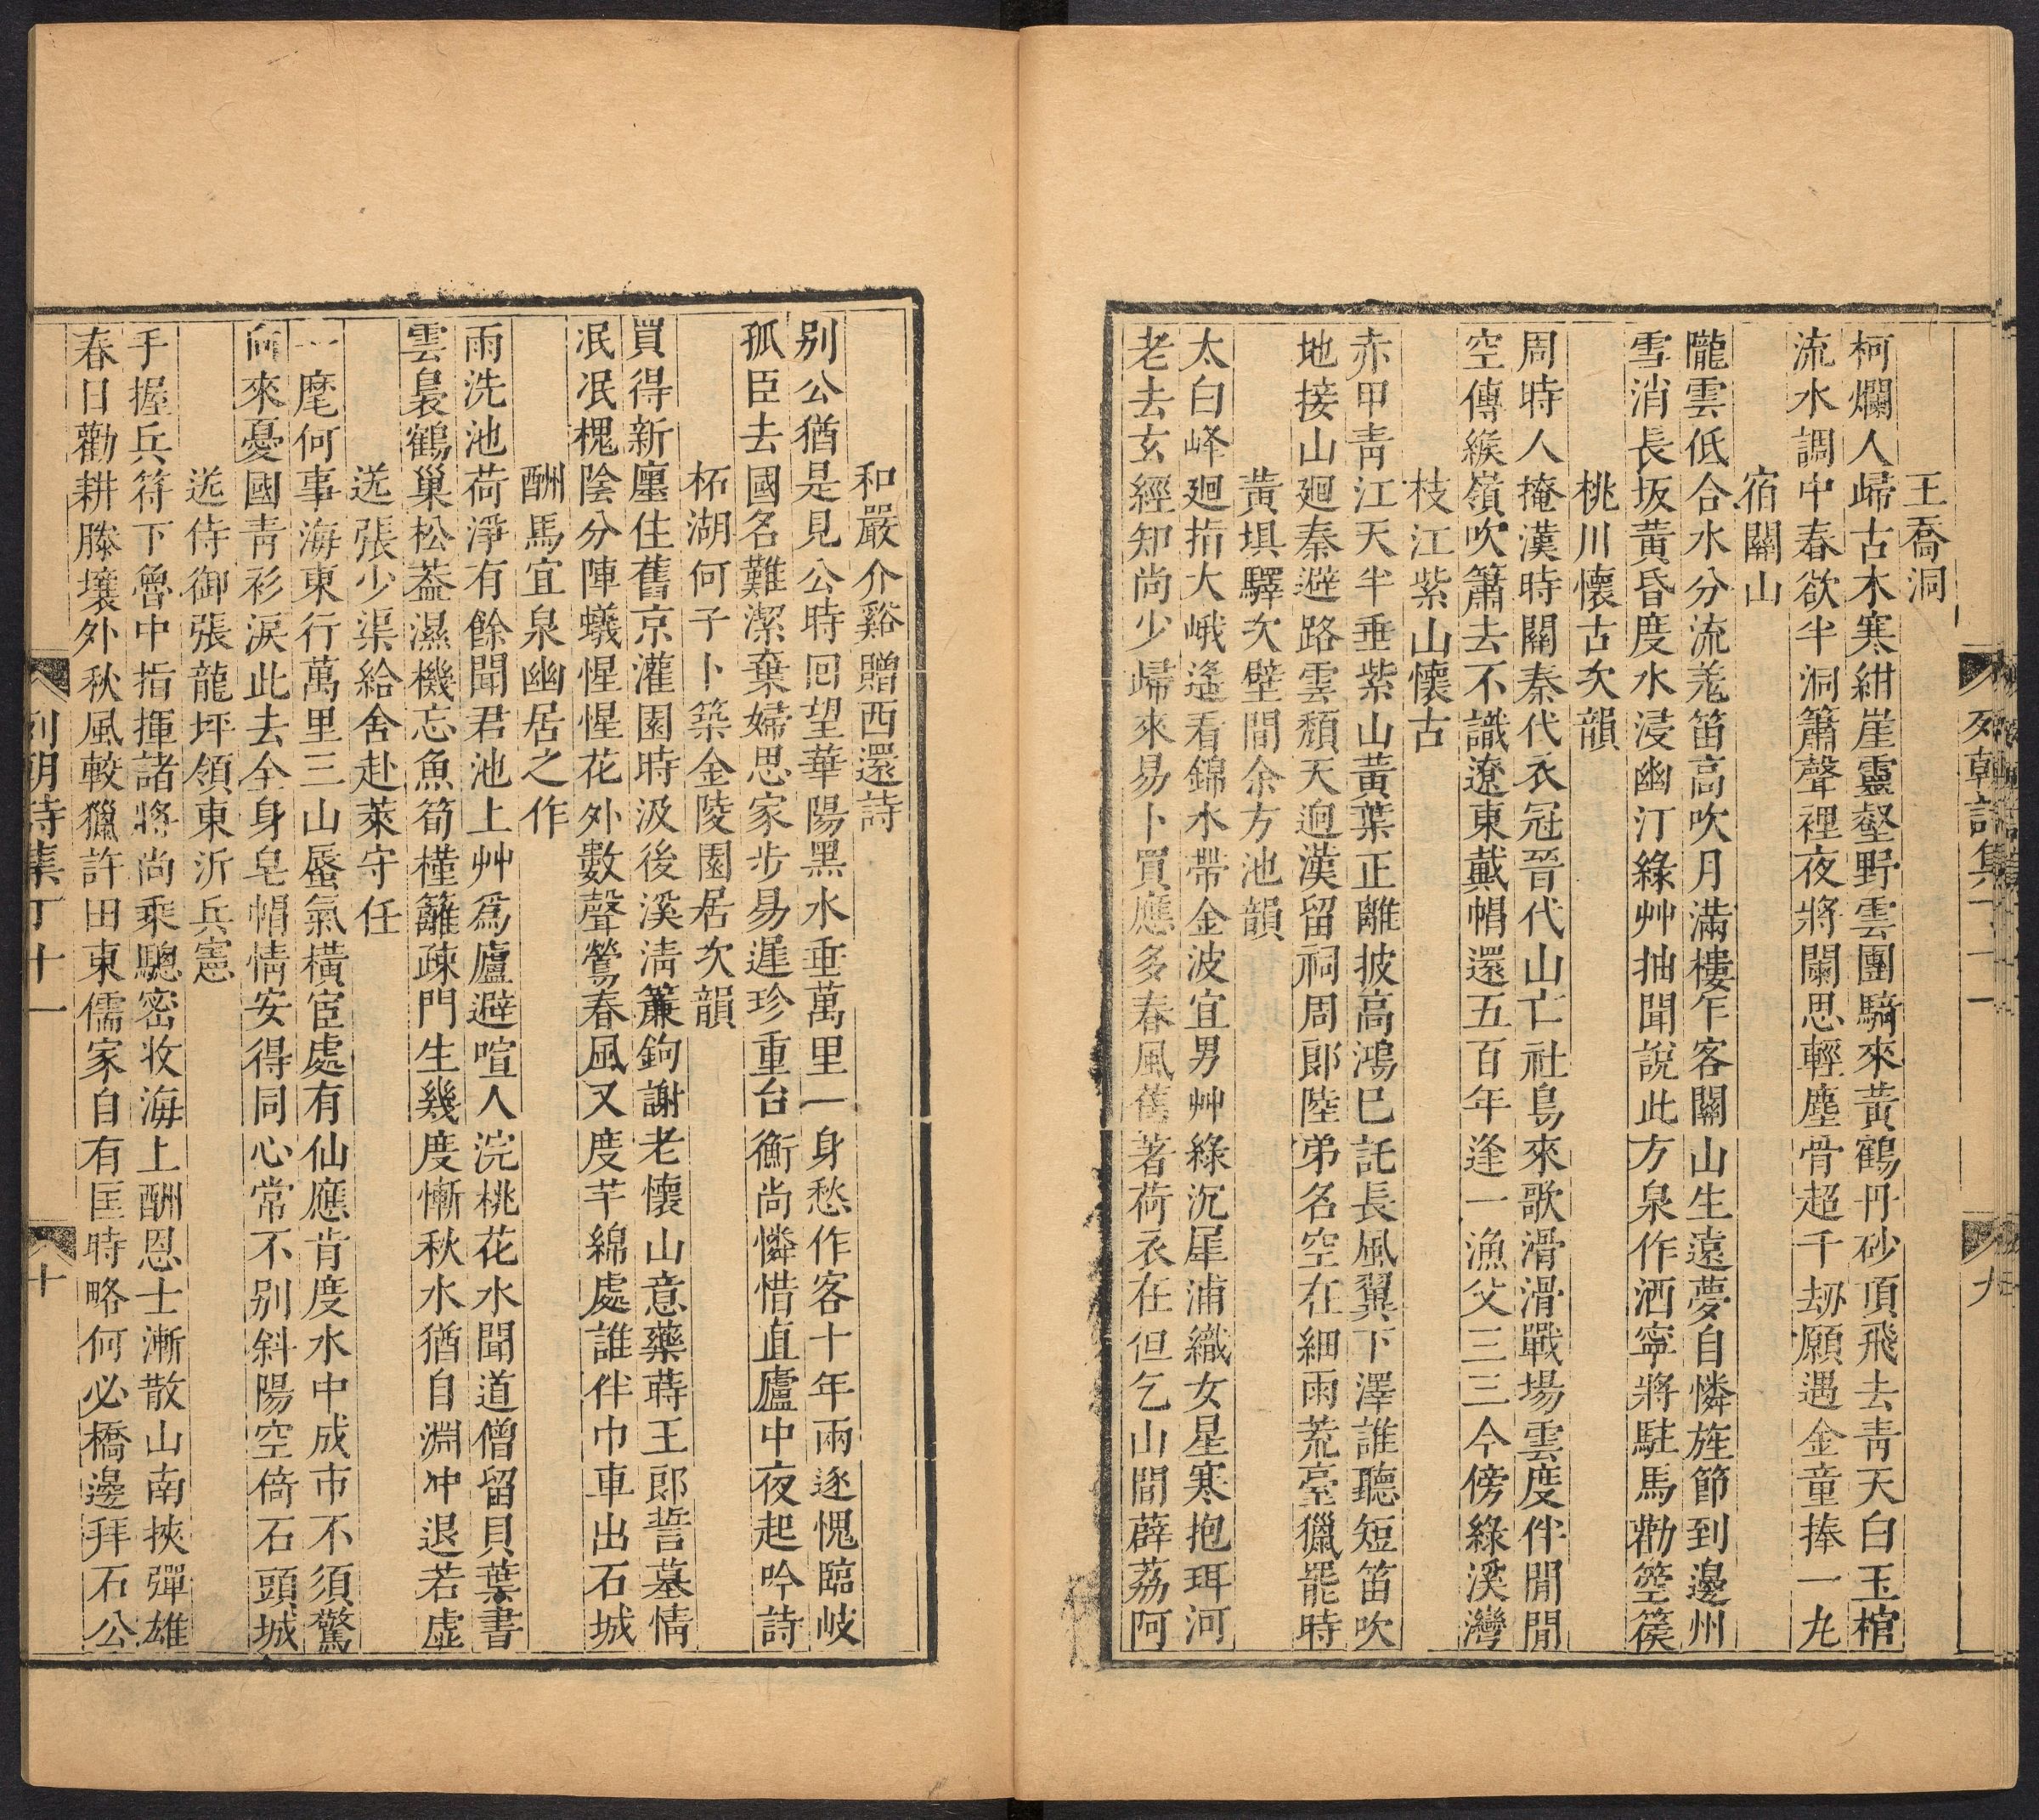 列朝詩集丁十一
九
王喬洞
柯爛人歸古木寒紺崖靈壑野雲團騎來黃鶴丹砂頂飛去青天白玉棺
流水調中春欲半洞簫聲裡夜將闌思輕塵骨超千劫願遇金童捧一丸
宿關山
隴雲低合水分流羌笛高吹月滿樓乍客關山生遠夢自憐旌節到邊州
雪消長坂黃昏度水浸幽汀綠艸抽聞說此方泉作酒寧將駐馬勸箜篌
桃川懷古次韻
周時人掩漢時關秦代衣冠晉代山亡社鳥來歌滑滑戰場雲度伴閒閒
空傳緱嶺吹簫去不識遼東戴帽還五百年逢一漁父三三今傍綠溪灣
枝江紫山懷古
赤甲青江天半垂紫山黃葉正離披高鴻巳託長風翼下澤誰聽短笛吹
地接山廻秦避路雲頹天逈漢留祠周郎陸弟名空在細雨荒臺獵罷時
黃堌驛次壁間余方池韻
太白峰廻指大峨遙看錦水帶金波宜男艸綠沉犀浦織女星寒抱珥河
老去玄經知尚少歸來易卜買應多春風舊著荷衣在但乞山間薜荔阿
和嚴介谿贈西還詩
別公猶是見公時囘望華陽黑水垂萬里一身愁作客十年兩逐愧臨岐
孤臣去國名難潔棄婦思家步易遲珍重台衡尚憐惜直廬中夜起吟詩
柘湖何子卜築金陵園居次韻
買得新廛住舊京灌園時汲後溪清簾鉤謝老懷山意藥蒔王郎誓墓情
泯泯槐陰分陣蟻惺惺花外數聲鶯春風又度芊綿處誰伴巾車出石城
酬馬宜泉幽居之作
雨洗池荷淨有餘聞君池上艸爲廬避喧人浣桃花水聞道僧留貝葉書
雲裊鶴巢松葢濕機忘魚筍槿籬疎門生幾度慚秋水猶自淵冲退若虛
送張少渠給舍赴萊守任
一麾何事海東行萬里三山蜃氣橫宦處有仙應肯度水中成市不須驚
向來憂國青衫淚此去全身皂帽情安得同心常不别斜陽空倚石頭城
送侍御張龍坪領東沂兵憲
手握兵符下魯中指揮諸將尚乘驄密收海上酬恩士漸散山南挾彈雄
春日勸耕滕壤外秋風較獵許田東儒家自有匡時略何必橋邊拜石公
列朝詩集丁十一
十